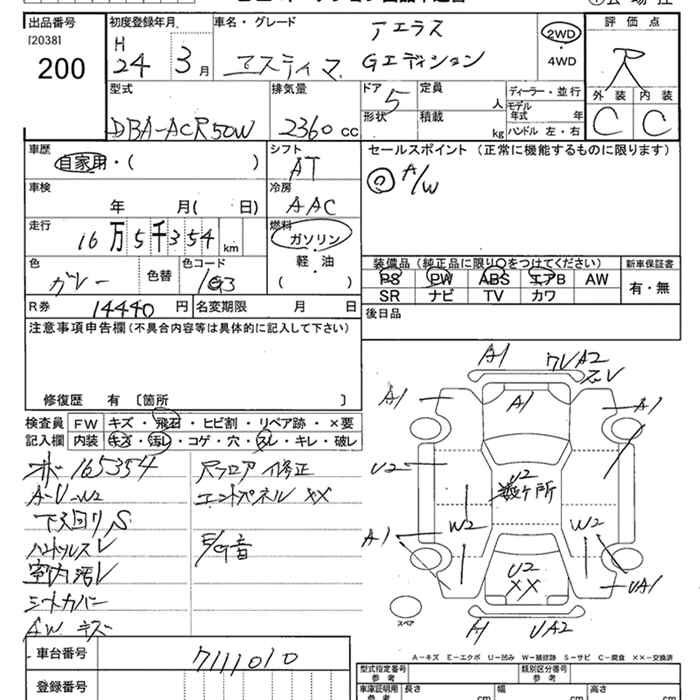 出品番号 初度登録年月 車名・グレード アエラス 2WD ・ 4WD 評価点
[20381
200 H 24 3月 エスティマ Gエディション R
型式 排気量 ドア 5 定員 人 ディーラー・並行 外装 内装
形状 積載 kg モデル年式 年
DBA-ACR50W 2360 CC ハンドル 左・右 C C
車歴 自家用・( シフト AT セールスポイント (正常に機能するものに限ります)
A/W
車検 年 月( 日) 冷房 AAC
走行 16万5千354 km 燃料 ガソリン・軽・油 ( )
装備品(純正品に限り○をつけてください) 新車保証書
色 グレー 色替 色コード 1G3 PS PW ABS エアB AW 有・無
SR ナビ TV カワ
R券 14440 円 名変期限 月 日 後日品
注意事項申告欄(不具合内容等は具体的に記入して下さい)
修復歴 有 〔箇所 〕
検査員 FW キズ・飛石・ヒビ割・リペア跡・×要
記入欄 内装 キズ・汚レ・コゲ・穴・スレ・キレ・破レ
メーター 165354 Rフロア修正
A-U-W2 エンドパネル XX
下廻りS
ハンドルスレ E/G音
室内汚レ
シートカバー
AW キズ
A1 ワレA2
A1 A1 A1
U2 U2 数ヶ所
W2 W2
A1 U2 XX UA1
スペア A1 UA2
A-キズ E-エクボ U-凹み W-補修跡 S-サビ C-腐食 XX-交換済
車台番号 7111010 型式指定番号 参考 類別区分番号 参考
登録番号 車庫証明用 参考 長さ cm 幅 cm 高さ cm